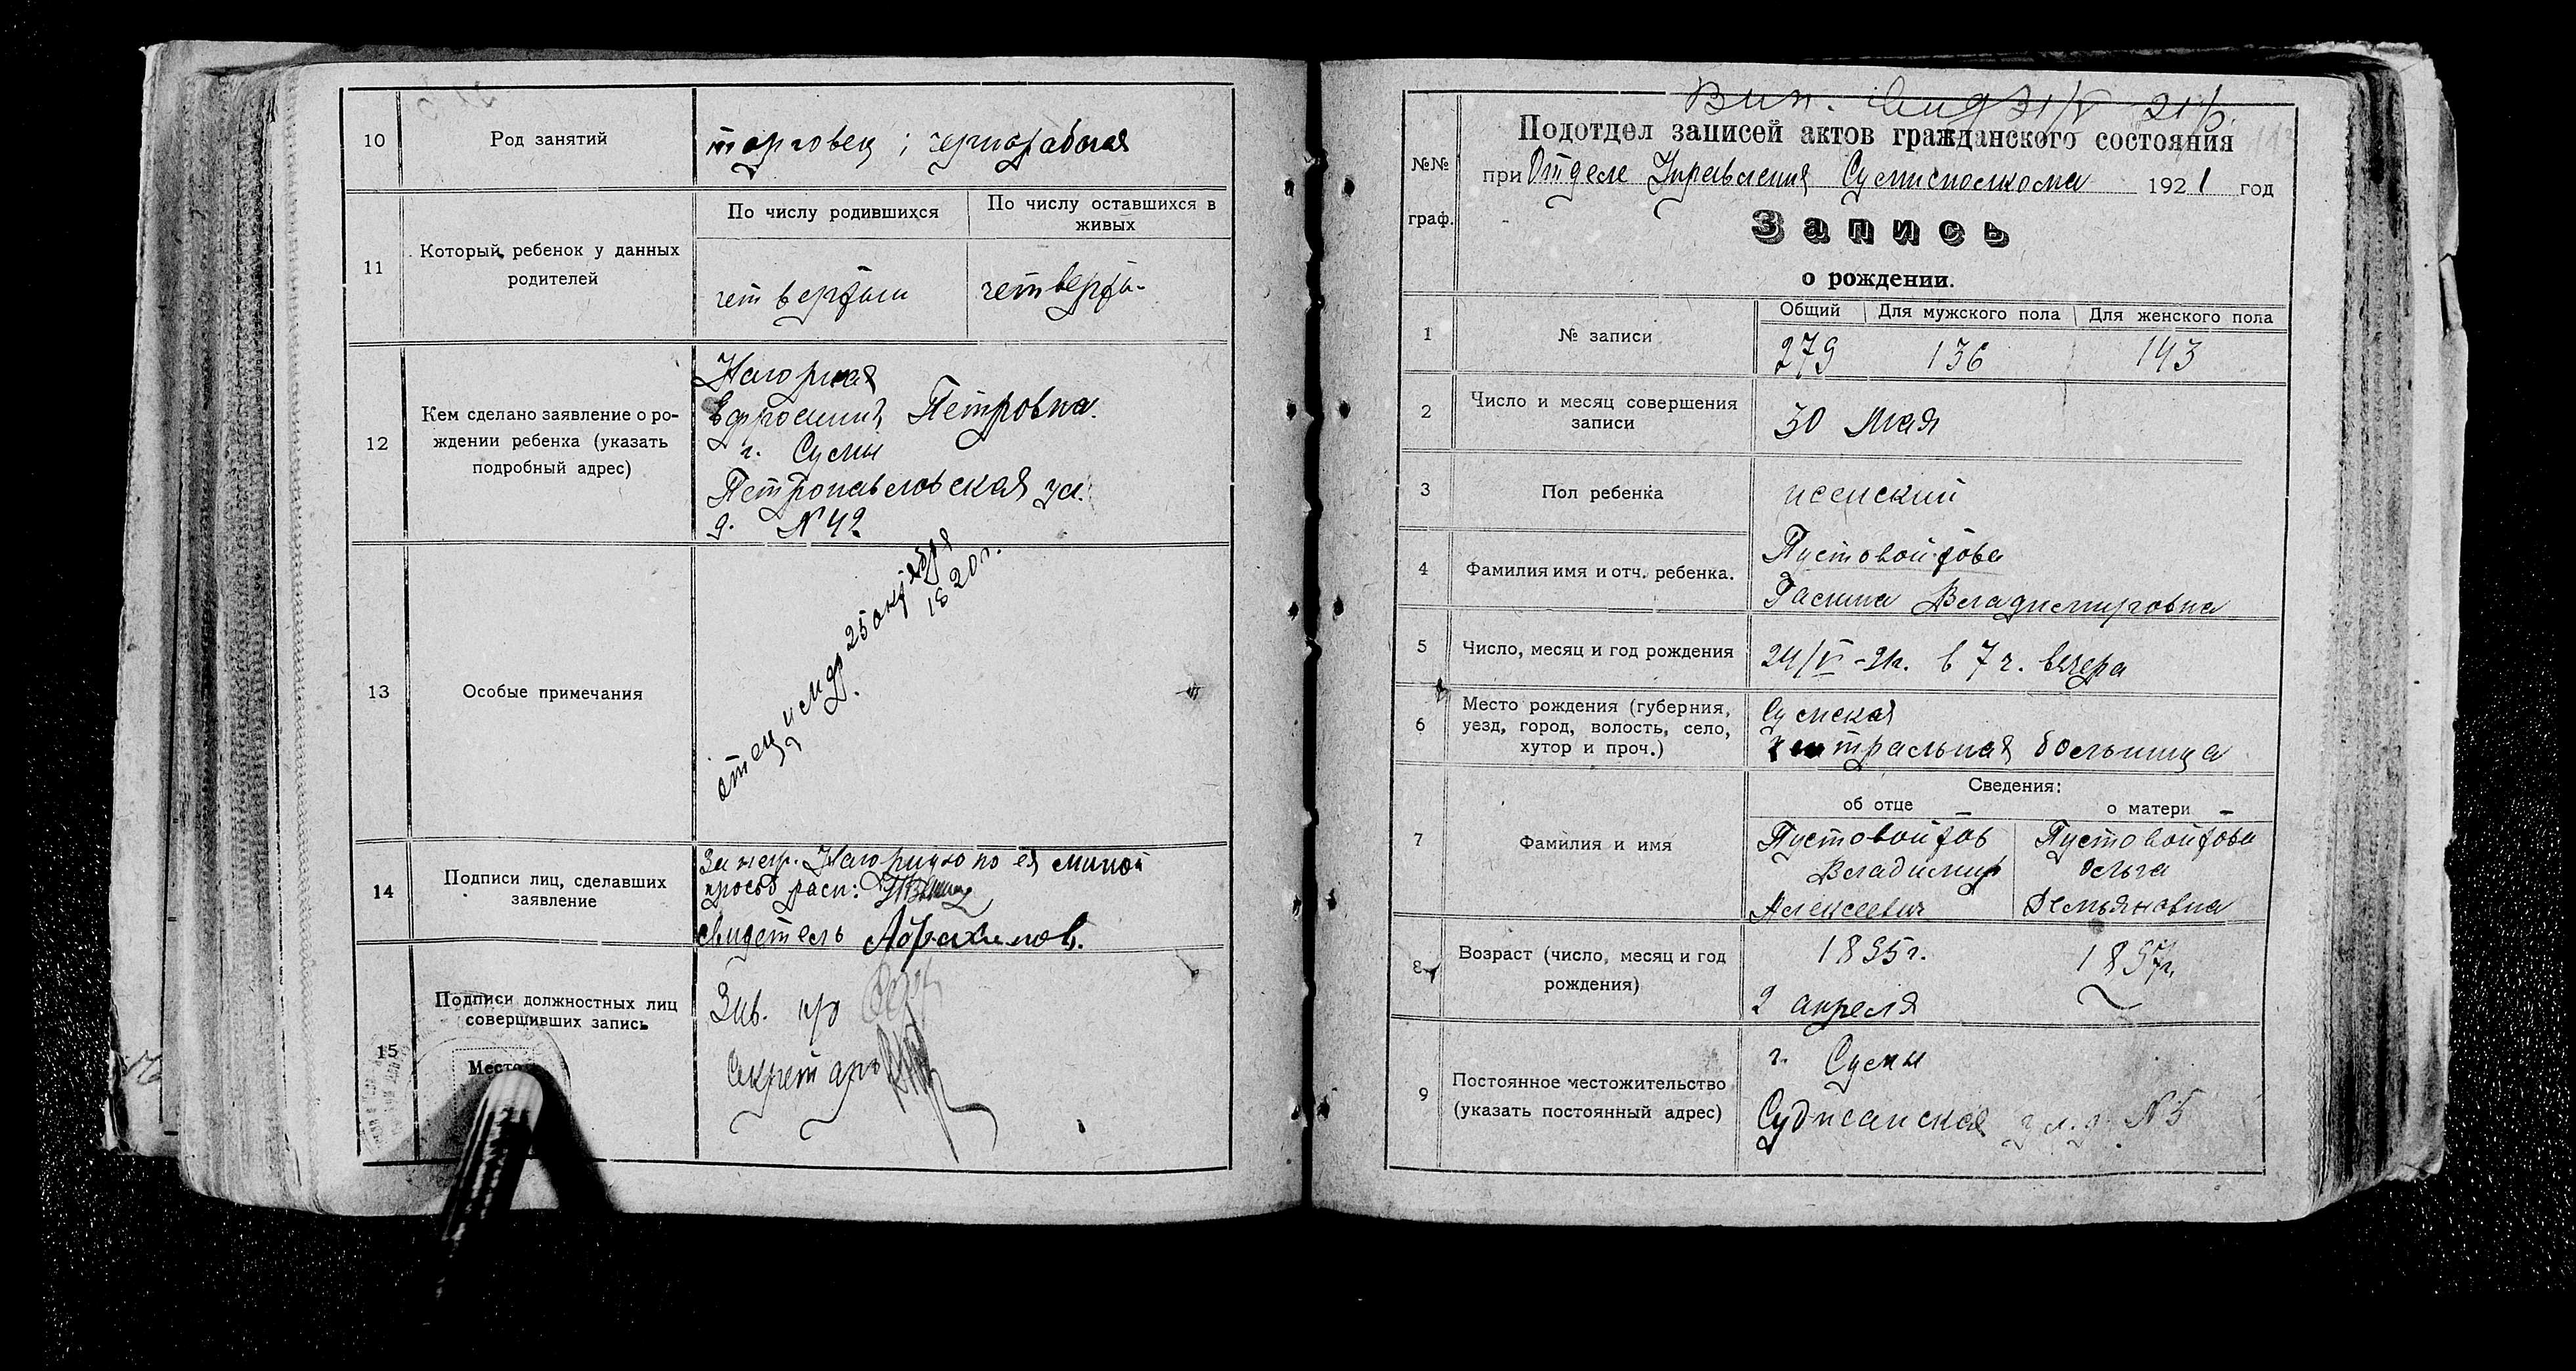 10
Род занятий
торговец ; чернорабочая
11
Который ребенок у данных
родителей
По числу родившихся
По числу оставшихся в
живых
четвертый
четверты-
12
Кем сделано заявление о ро-
ждении ребенка (указать
подробный адрес)
Нагорная
Ефросиния Петровна.
г. Сумы
Петропавловская ул.
д. N 42
13
Особые примечания
отец умер 25 октября
1920 г.
14
Подписи лиц, сделавших
заявление
За негр. Нагорную по ея личной
просьб расп:
свидетель
15
Подписи должностных лиц
совершивших запись
Место
Зав. п/о
Секретарь
31/V 21
№№
граф.
Подотдел записей актов гражданского состояния
при Отделе Управления Сумисполкома 1921 год
Запись
о рождении.
1
№ записи
Общий
Для мужского пола
Для женского пола
279
136
143
2
Число и месяц совершения
записи
30 Мая
3
Пол ребенка
женский
4
Фамилия имя и отч. ребенка.
Пустовойтова
Галина Владимировна
5
Число, месяц и год рождения
24/V -21г. в 7 ч. вечера
6
Место рождения (губерния,
уезд, город, волость, село,
хутор и проч.)
Сумская
центральная больница
7
Фамилия и имя
Сведения:
об отце
о матери
Пустовойтов
Владимир
Алексеевич
Пустовойтова
Ольга
Демьяновна
8
Возраст (число, месяц и год
рождения)
1895 г.
2 апреля
1897г.
9
Постоянное местожительство
(указать постоянный адрес)
г. Сумы
Суджанская ул. д. N 5